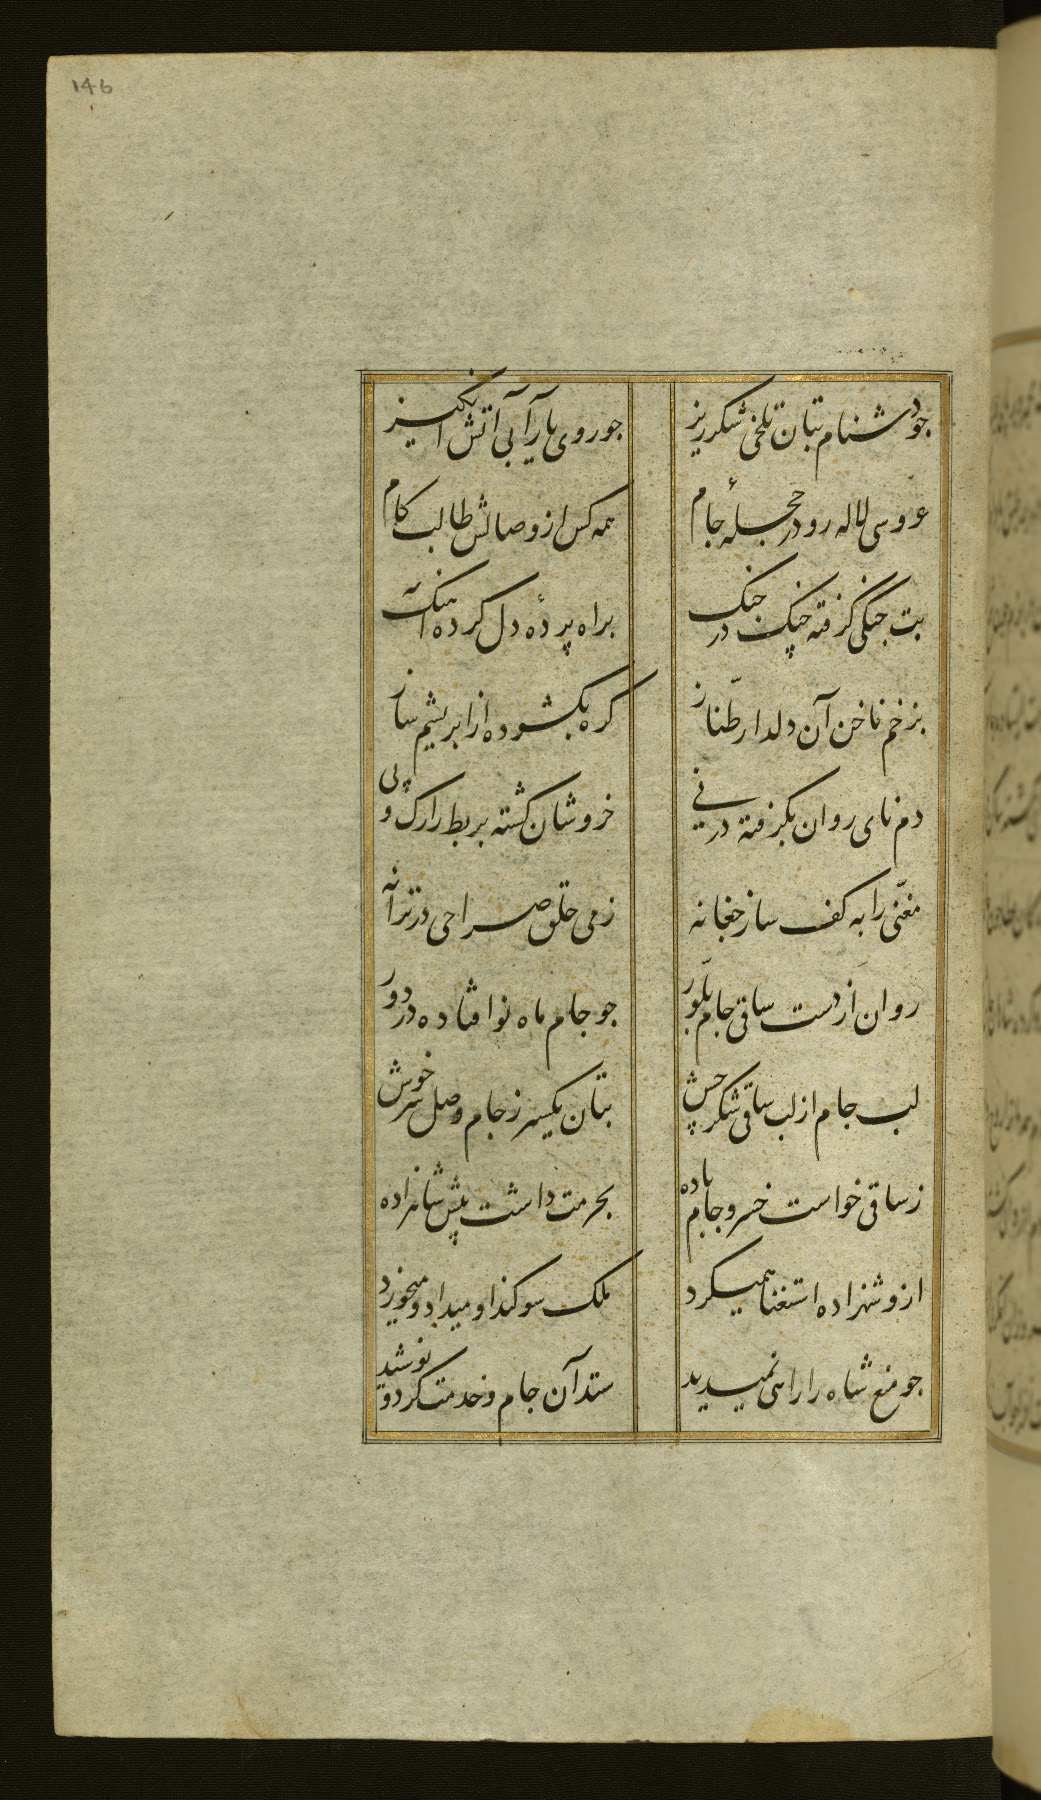 146
جو دشنام بتان تلخی شکرریز
جو روی یار آبی آتش انگیز
عروسی لاله رو در حجلهٔ جام
همه کس از وصالش طالب کام
بت جنکی کرفته چنک در جنک
براه پردهٔ دل کرده آهنک
بزخم ناخن آن دلدار طنّاز
کره بکشوده از ابریشم ساز
دم نای روان بکرفته در نی
خروشان کشته بربط را رک و پی
مغنّی را به کف ساز جغانه
ز می حلق صراحی در ترانه
روان از دست ساقی جام بلّور
جو جام ماه نو افتاده در دور
لب جام از لب ساقی شکر جش
بتان یکسر ز جام وصل سرخوش
ز ساقی خواست خسرو جام باده
بحرمت داشت پیش شاهزاده
ازو شهزاده استغنا همیکرد
ملک سوکند او میداد و میخورد
جو منع شاه را راهی نمیدید
ستد آن جام و خدمت کرد و نوشید